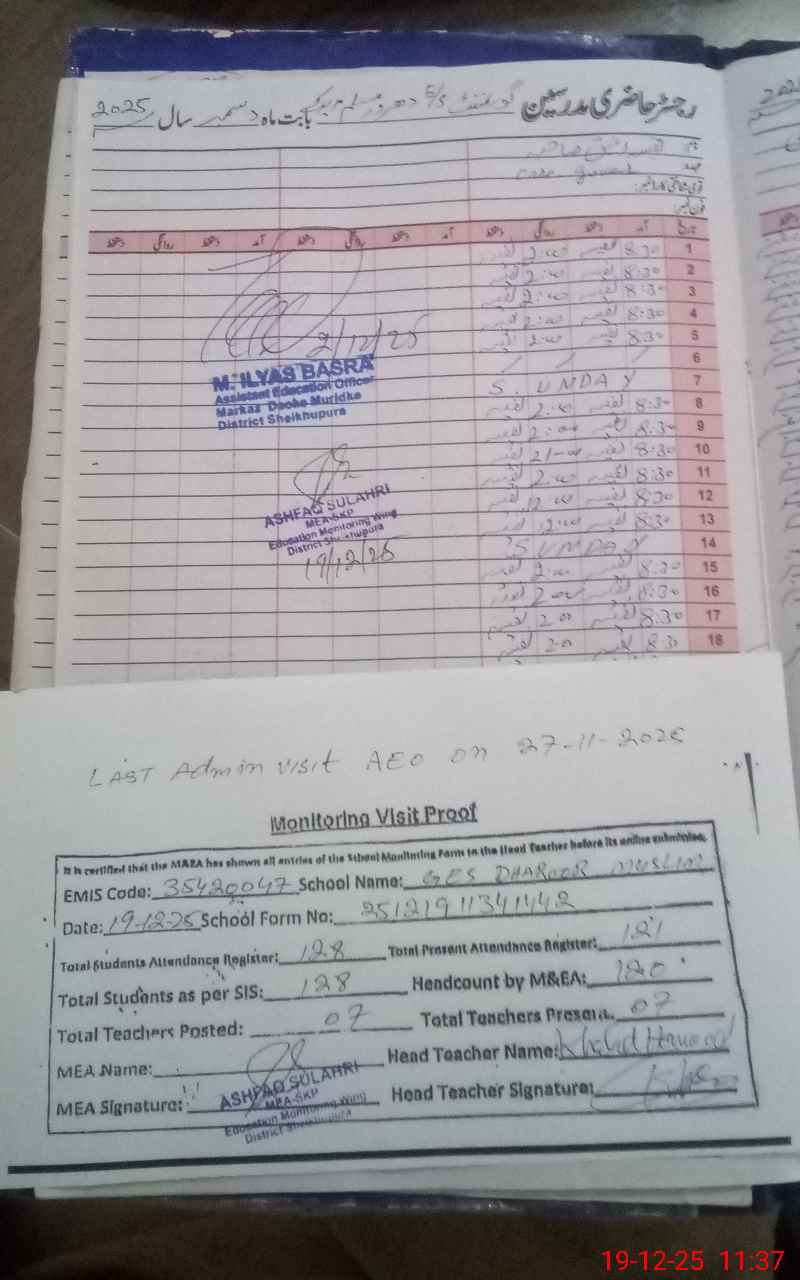 رجسٹر حاضری مدرسین گورنمنٹ E/S دھروڑ مسلم بابت ماہ دسمبر سال 2025
نام
عہدہ
قومی شناختی کارڈ نمبر:
فون نمبر:
تاریخ آمد دستخط روانگی دستخط آمد دستخط روانگی دستخط
1 8:30 2:00
2 8:30 2:00
3 8:30 2:00
4 8:30 2:00
5 8:30 2:00
6
7 S.UNDAY
8 8:30 2:00
9 8:30 2:00
10 8:30
11 8:30 2:00
12 8:30 12:00
13 8:30 12:00
14 SUNDAY
15 8:30 2:00
16 8:30 2:00
17 8:30 2:00
18 8:30 2:00
2/12/25
M. ILYAS BASRA
Assistant Education Officer
Markaz Daoke Muridke
District Sheikhupura
ASHFAQ SULAHRI
MEA-SKP
Education Monitoring Wing
District Sheikhupura
19/12/25
LAST Admin visit AEO on 27-11-2025
Monitoring Visit Proof
It is certified that the M&EA has shown all entries of the School Monitoring Form to the Head Teacher before its online submission.
EMIS Code: 35420047 School Name: GES DHAROER MUSLIM
Date: 19-12-25 School Form No: 25121911341442
Total Students Attendance Register: 128 Total Present Attendance Register: 121
Total Students as per SIS: 128 Headcount by M&EA: 120
Total Teachers Posted: 07 Total Teachers Present: 07
MEA Name: Head Teacher Name: Khalid
MEA Signature: Head Teacher Signature:
ASHFAQ SULAHRI
MEA-SKP
Education Monitoring Wing
District Sheikhupura
19-12-25 11:37